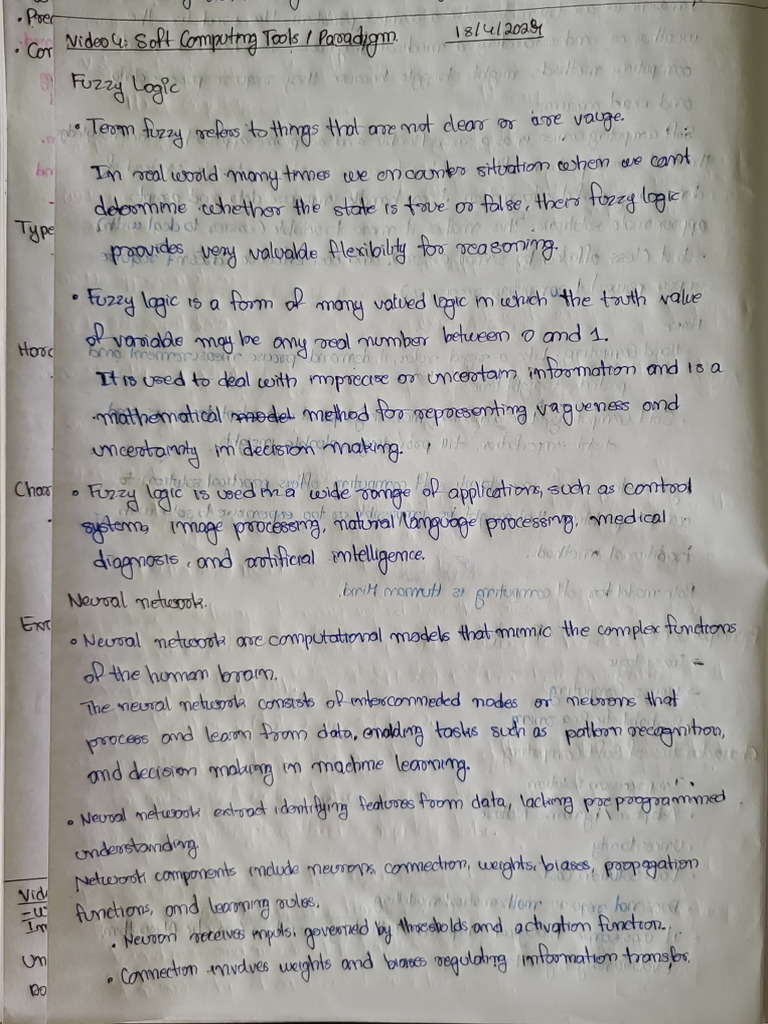 • Prer
• Cor
Type
Harc
Char
Exr
Vid
In
Un
Do
Video 4: Soft Computing Tools / Paradigm. 18/4/2024
Fuzzy Logic
• Term fuzzy refers to things that are not clear or are vauge.
In real world many times we encounter situation when we can't
determine whether the state is true or false, their fuzzy logic
provides very valuable flexibility for reasoning.
• Fuzzy logic is a form of many valued logic in which the truth value
of variable may be any real number between 0 and 1.
It is used to deal with imprecise or uncertain information and is a
mathematical model method for representing vagueness and
uncertainity in decision making.
• Fuzzy logic is used in a wide range of applications, such as control
system, image processing, natural language processing, medical
diagnosis, and artificial intelligence.
Neural network.
• Neural network are computational models that mimic the complex functions
of the human brain.
The neural network consists of interconneded nodes or neurons that
process and learn from data, enabling tasks such as pattern recognition,
and decision making in machine learning.
• Neural network extract identifying features from data, lacking preprogrammed
understanding.
Network components include neurons, connection, weights, biases, propagation
functions, and learning rules.
• Neuron receives inputs, governed by thresholds and activation function.
• Connection involves weights and biases regulating information transfer.